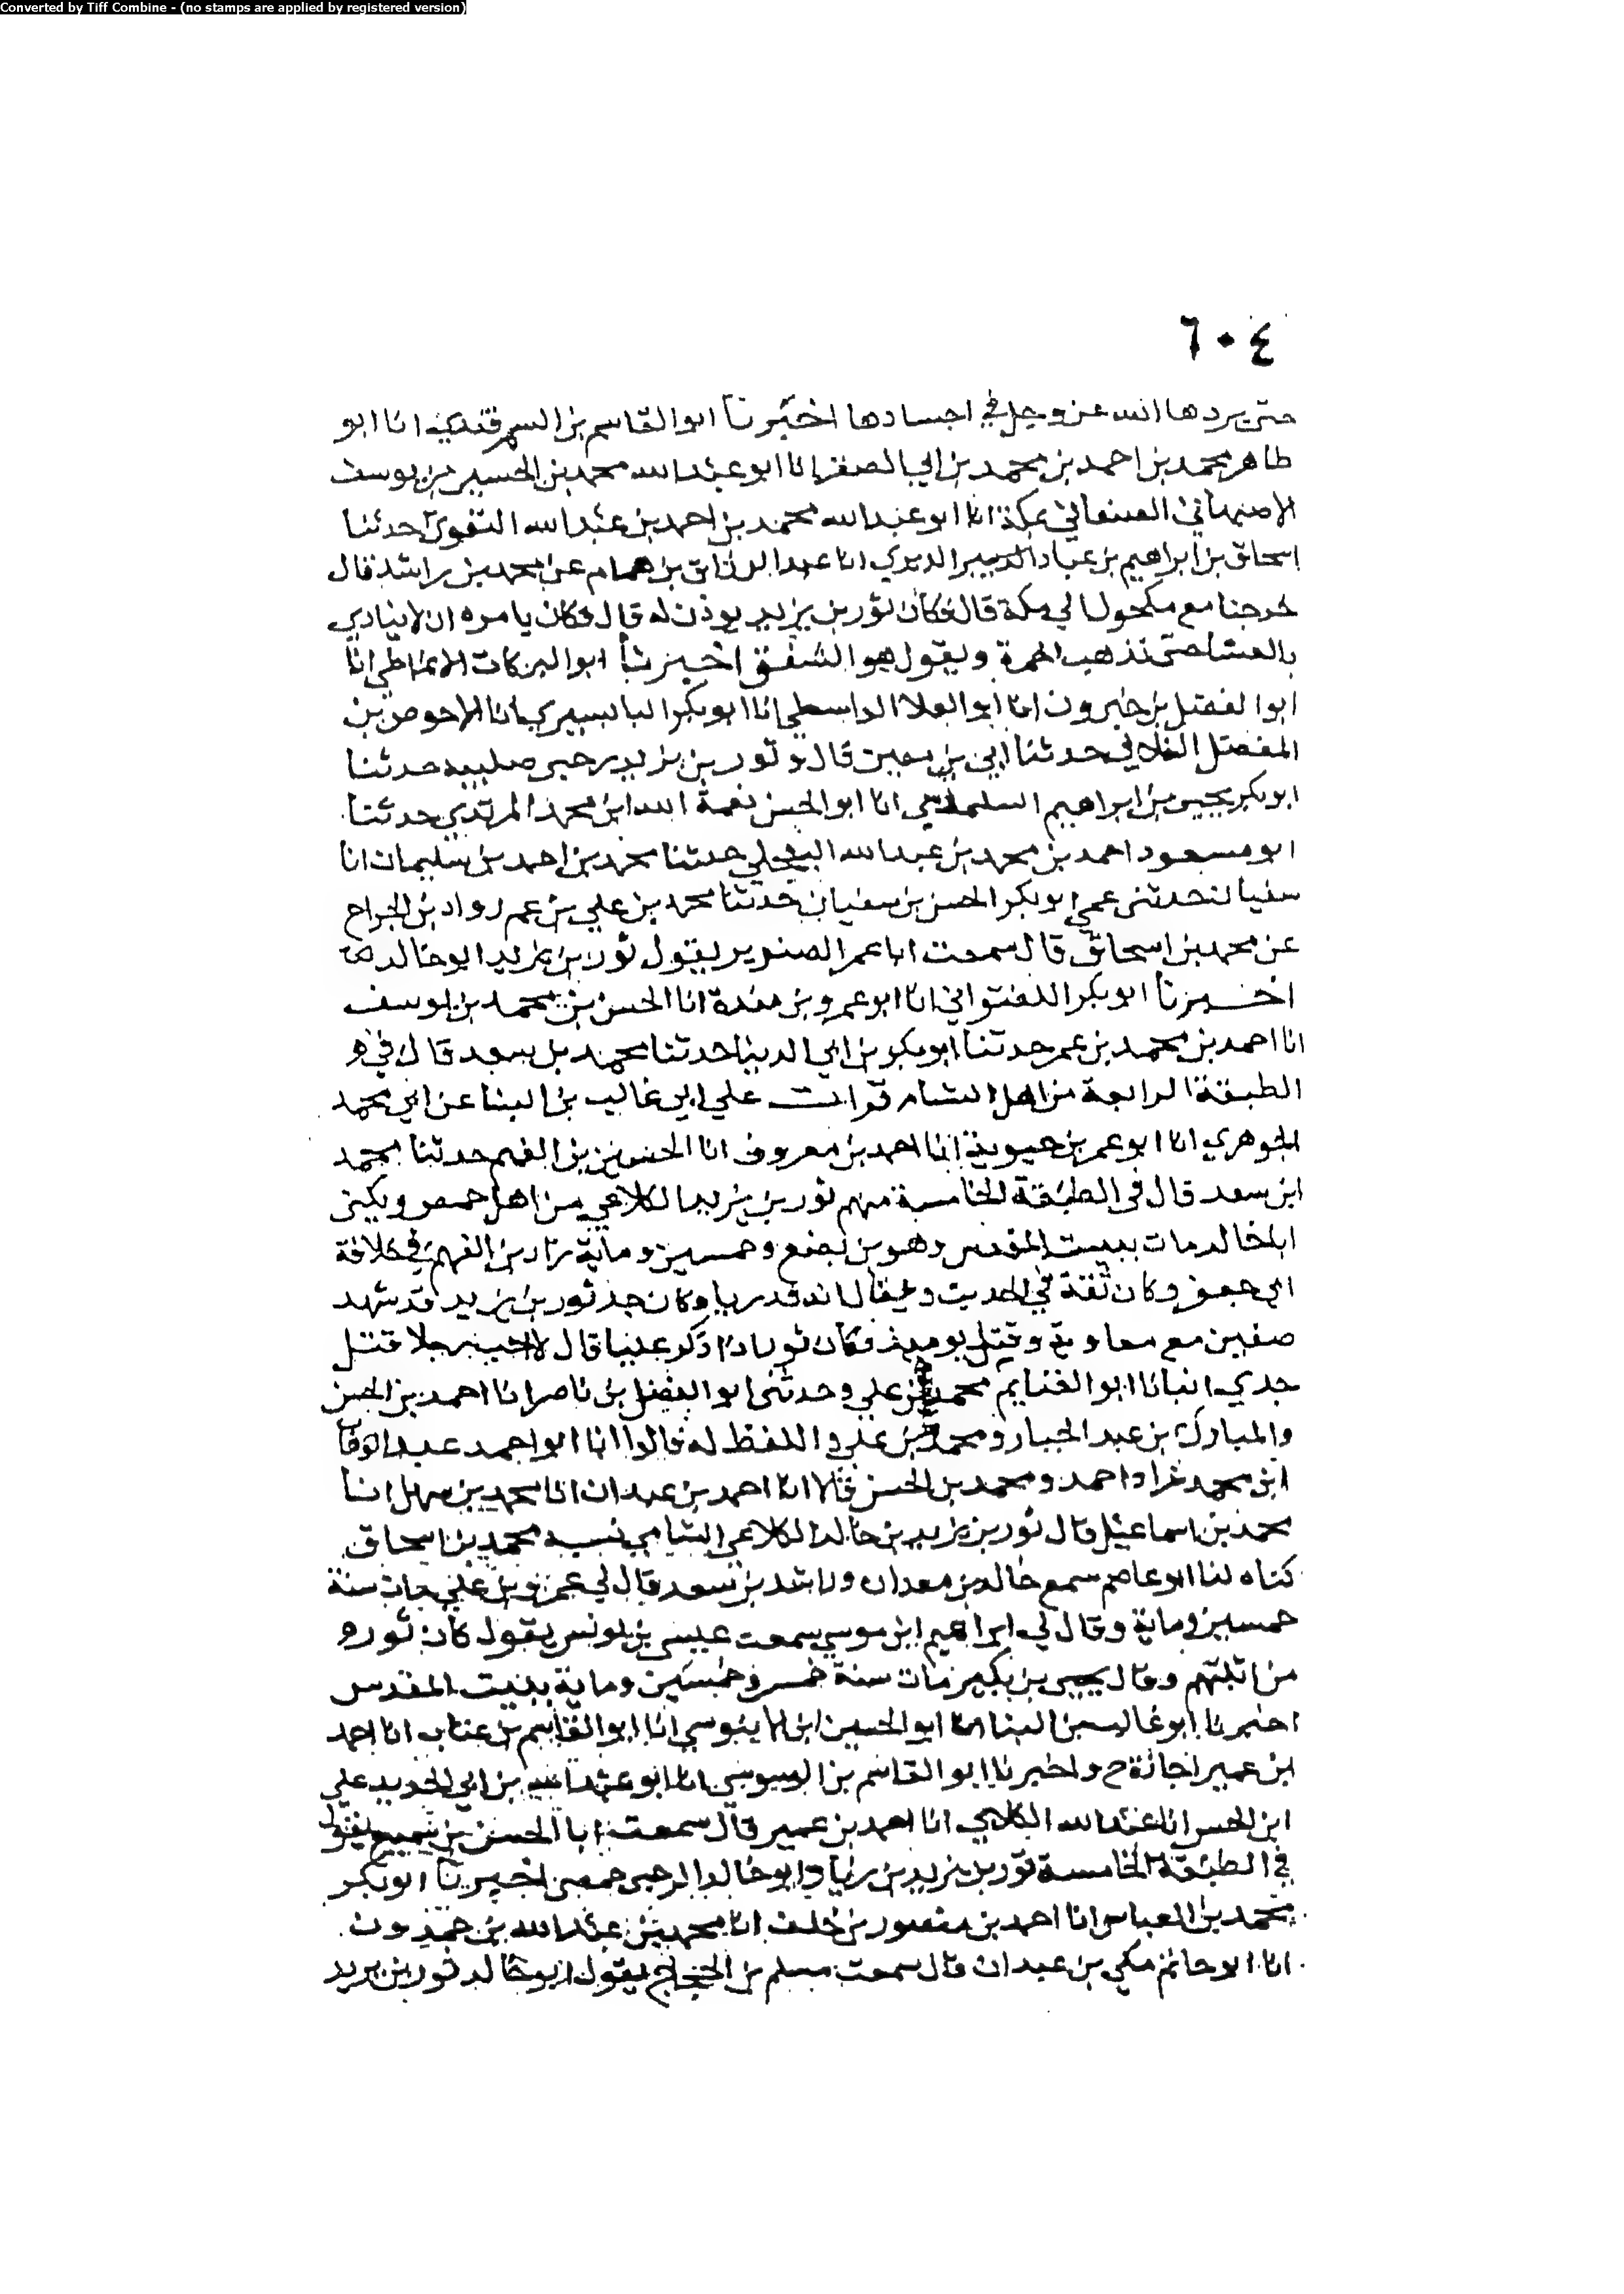 Converted by Tiff Combine - (no stamps are applied by registered version)
٦٠٤
حتى يردها الله عز وجل في اجسادها اخبرنا ابو القاسم بن السمرقندي انا ابو
طاهر محمد بن احمد بن محمد بن ابي الصقر انا ابو عبد الله محمد بن الحسين بن يوسف
الاصبهاني الصنعاني بمكة انا ابو عبد الله محمد بن احمد بن عبد الله النقوي حدثنا
اسحاق بن ابراهيم بن عباد الدبري انا عبد الرزاق بن همام عن محمد بن راشد قال
خرجنا مع مكحول الي مكة قال فكان ثور بن يزيد يوذن له قال فكان يامره ان لا ينادي
بالعشا حتى تذهب الحمرة ويقول هو الشفق اخبرنا ابو البركات الانماطي انا
ابو الفضل بن خيرون انا ابو العلا الواسطي انا ابو بكر البابسيري انا الاحوص بن
المفضل الغلابي حدثنا ابي بن معين قال وثور بن يزيد رحبي صليبيه حدثنا
ابو بكر يحيى بن ابراهيم السلماسي انا ابو الحسن نعمة الله ابن محمد المرتدي حدثنا
ابو مسعود احمد بن محمد بن عبد الله البجلي حدثنا محمد بن احمد بن سليمان انا
سفيان حدثني عمي ابو بكر الحسن بن سفيان حدثنا محمد بن علي بن عم رواد بن الجراح
عن محمد بن اسحاق قال سمعت ابا عمر الضرير يقول ثور بن يزيد ابو خالد
اخبرنا ابو بكر اللفتواني انا ابو عمرو بن مندة انا الحسن بن محمد بن يوسف
انا احمد بن محمد بن عمر حدثنا ابو بكر بن ابي الدنيا حدثنا محمد بن سعد قال في
الطبقة الرابعة من اهل الشام قرات علي ابي غالب بن البنا عن ابي محمد
الجوهري انا ابو عمر بن حيوية انا احمد بن معروف انا الحسين بن الفهم حدثنا محمد
ابن سعد قال في الطبقة الخامسة منهم ثور بن يزيد الكلاعي من اهل حمص ويكنى
ابا خالد مات ببيت المقدس وهو بن بضع وخمسين وماية زاد بن الفهم في خلافة
ابي جعفر وكان ثقة في الحديث ويقال انه قدريا وكان جد ثور بن يزيد قد شهد
صفين مع معاوية وقتل يوميذ فكان ثور اذا ذكر عليا قال لا احب رجلا قتل
جدي انبانا ابو الغنايم محمد بن علي وحدثني ابو الفضل بن ناصر انا احمد بن الحسن
والمبارك بن عبد الجبار ومحمد بن علي واللفظ له قالوا انا ابو احمد عبد الوهاب
ابن محمد زاد احمد ومحمد بن الحسن قالا انا احمد بن عبدان انا محمد بن سهل انا
محمد بن اسماعيل قال ثور بن يزيد بن خالد الكلاعي الشامي نسبه محمد بن اسحاق
كناه لنا ابو عاصم سمع خالد بن معدان وراشد بن سعد قال لي عمرو بن علي مات سنة
خمسين وماية وقال لي ابراهيم ابن موسي سمعت عيسى بن يونس يقول كان ثور
من اثبتهم وقال يحيى بن بكير مات سنة خمس وخمسين وماية ببيت المقدس
اخبرنا ابو غالب بن البنا انا ابو الحسين ابن الابنوسي انا ابو القاسم بن عتاب انا احمد
ابن عمير اجازة ح واخبرنا ابو القاسم بن السوسي انا ابو عبد الله بن ابي الحديد علي
ابن الحسن انا عبد الله الكلابي انا احمد بن عمير قال سمعت ابا الحسن بن سميع يقول
في الطبقة الخامسة ثور بن يزيد بن زياد ابو خالد الرحبي حمصي اخبرنا ابو بكر
محمد بن العباس انا احمد بن منصور بن خلف انا محمد بن عبد الله بن حمدون
انا ابو حاتم مكي بن عبدان قال سمعت مسلم بن الحجاج يقول ابو خالد ثور بن يزيد